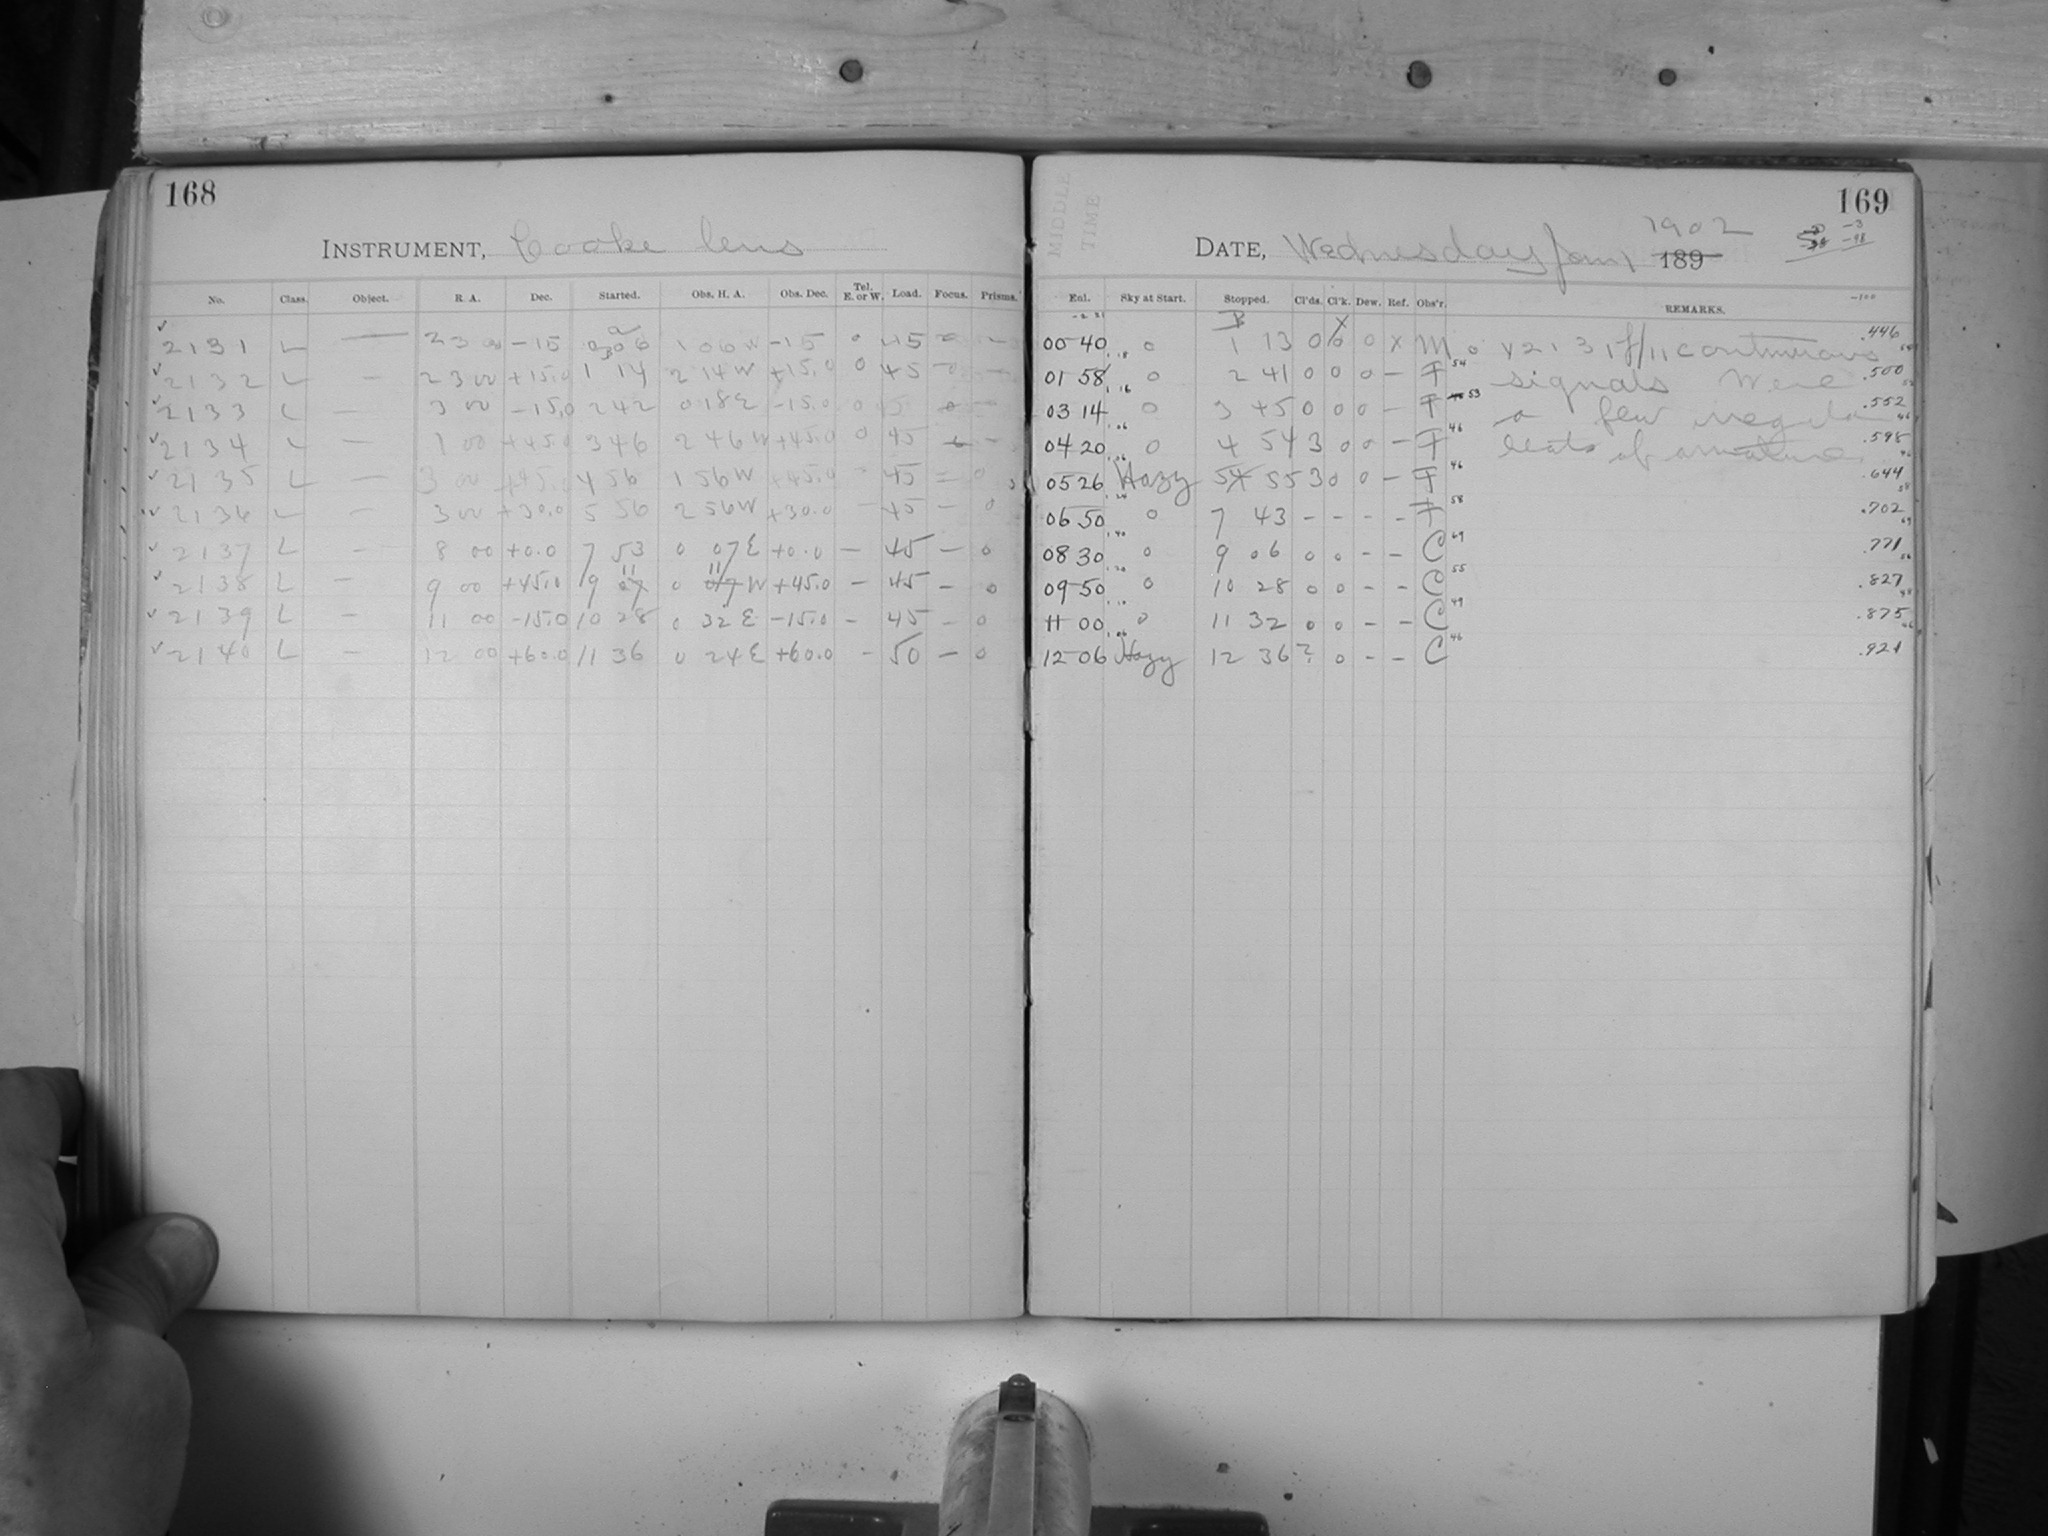 168
INSTRUMENT, Cooke lens
No. Class. Object. R. A. Dec. Started. Obs. H. A. Obs. Dec. Tel. E. or W. Load. Focus. Prisms.
2131 L — 23 00 -15 0 06 1 06 W -15 0 45
2132 L — 23 00 +15.0 1 14 2 14 W +15.0 0 45
2133 L — 3 00 -15.0 2 42 0 18 E -15.0 0 45
2134 L — 1 00 +45.0 3 46 2 46 W +45.0 0 45
2135 L — 3 00 +45.0 4 56 1 56 W +45.0 - 45 - 0
2136 L — 3 00 +30.0 5 56 2 56 W +30.0 - 45 - 0
2137 L — 8 00 +0.0 7 53 0 07 E +0.0 — 45 — 0
2138 L — 9 00 +45.0 9 11 0 11 W +45.0 — 45 — 0
2139 L — 11 00 -15.0 10 28 0 32 E -15.0 — 45 — 0
2140 L — 12 00 +60.0 11 36 0 24 E +60.0 — 50 — 0
169
MIDDLE TIME
DATE, Wednesday Jan 1 1902 189
Eal. Sky at Start. Stopped. Cl'ds. Cl'k. Dew. Ref. Obs'r. REMARKS.
-100
00 40 0 1 13 0 0 0 x M 0 x 2131 If/11 continuous .446
01 58 0 2 41 0 0 0 — F 54 signals were .500
03 14 0 3 45 0 0 0 — F 53 a few irregular .552
04 20 0 4 54 3 0 0 — F 46 beats of armature .598
05 26 Hazy 5 55 3 0 0 — F 46 .644
06 50 0 7 43 - - - - F 58 .702
08 30 0 9 06 0 0 - - C 69 .771
09 50 0 10 28 0 0 - - C 55 .827
11 00 0 11 32 0 0 - - C 49 .875
12 06 Hazy 12 36 ? 0 - - C 46 .921